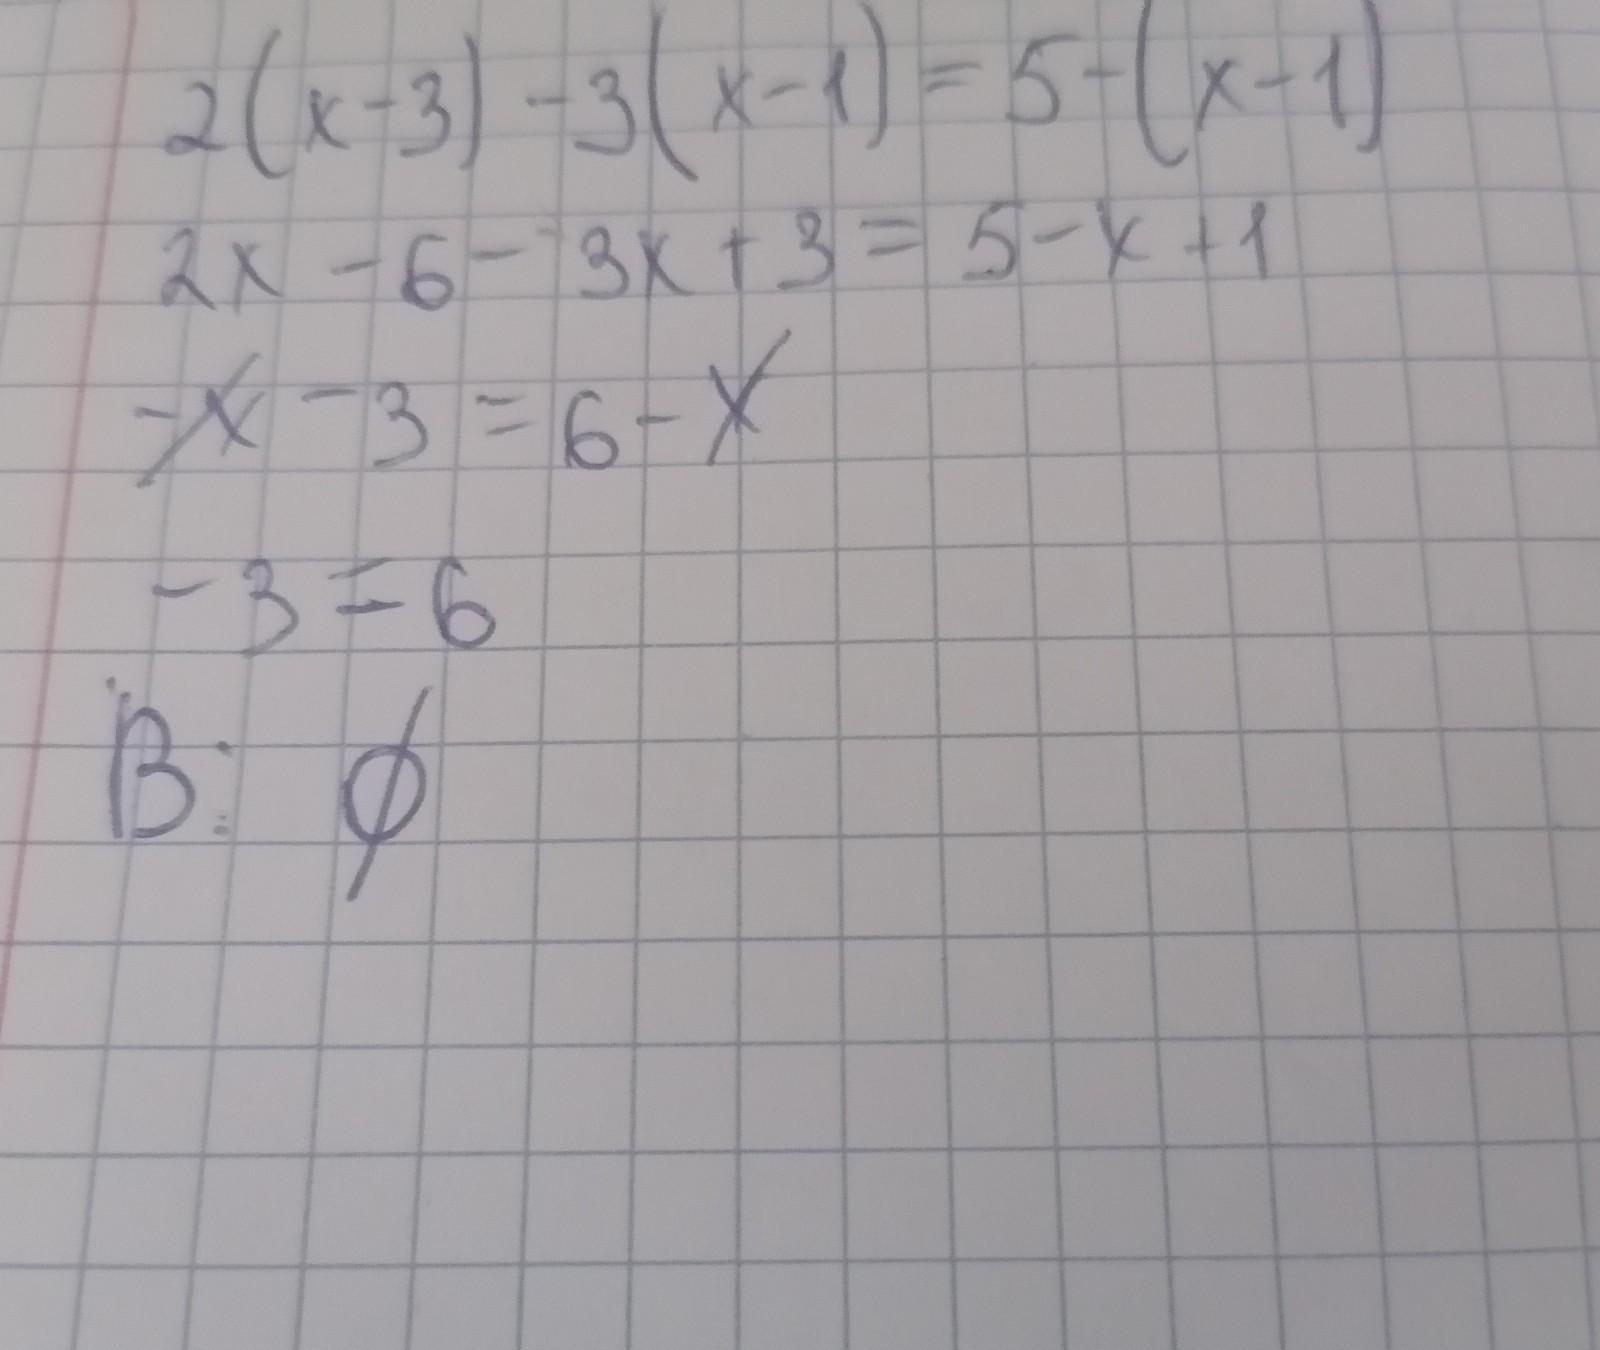 2(x-3)-3(x-1)=5-(x-1)
2x-6-3x+3=5-x+1
-x-3=6-x
-3=6
В: ∅